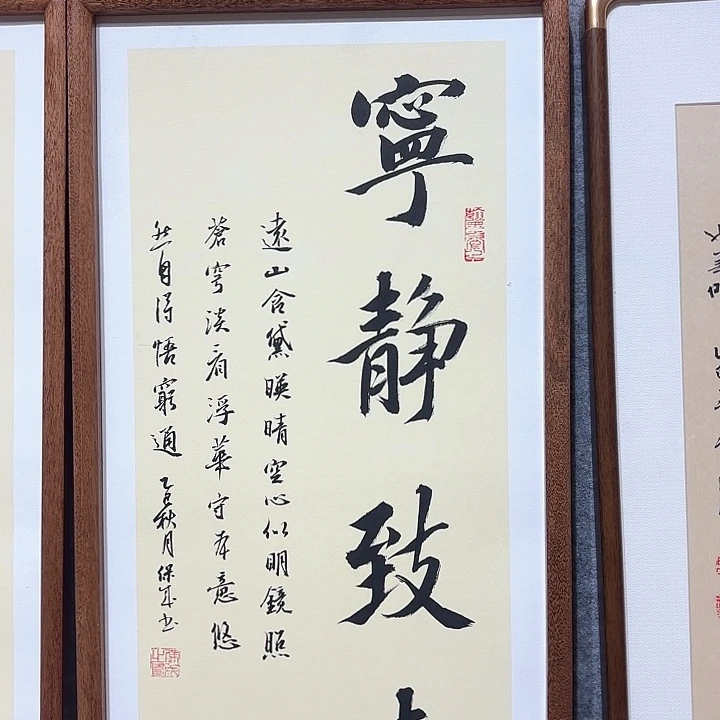 寧靜致
遠山含黛暎晴空心似明鏡照
蒼穹淡看浮華守本意悠
然自得悟窮通 乙巳秋月保成书